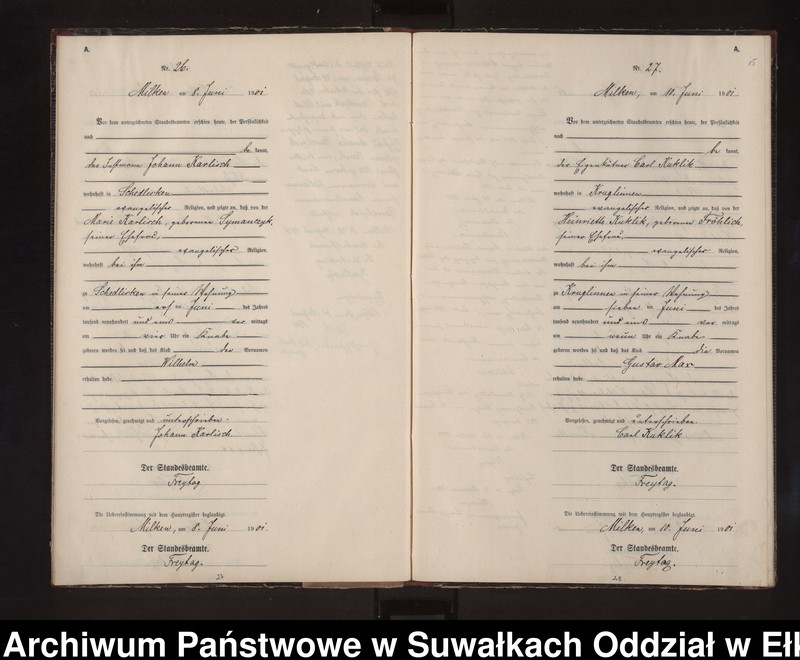 A.
Nr. 26.
Milken am 8. Juni 1901
Vor dem unterzeichneten Standesbeamten erschien heute, der Persönlichkeit
nach
be kannt,
der Instmann Johann Karlisch
wohnhaft in Schedlisken
evangelischer Religion, und zeigte an, daß von der
Marie Karlisch, geborenen Symanczyk,
seiner Ehefrau,
evangelischer Religion,
wohnhaft bei ihm
zu Schedlisken in seiner Wohnung
am ersten Juni des Jahres
tausend neunhundert und eins vor mittags
um vier Uhr ein Knabe
geboren worden sei und daß das Kind den Vornamen
Wilhelm
erhalten habe.
Vorgelesen, genehmigt und unterschrieben.
Johann Karlisch
Der Standesbeamte.
Freytag
Die Uebereinstimmung mit dem Hauptregister beglaubigt.
Milken, am 8. Juni 1901
Der Standesbeamte.
Freytag.
A.
Nr. 27.
Milken, am 10. Juni 1901
Vor dem unterzeichneten Standesbeamten erschien heute, der Persönlichkeit
nach
be kannt,
der Eigenkätner Carl Kuklik
wohnhaft in Kruglinnen
evangelischer Religion, und zeigte an, daß von der
Heinriette Kuklik, geborenen Fröhlich,
seiner Ehefrau,
evangelischer Religion,
wohnhaft bei ihm
zu Kruglinnen in seiner Wohnung
am sieben ten Juni des Jahres
tausend neunhundert und eins vor mittags
um neun Uhr ein Knabe
geboren worden sei und daß das Kind die Vornamen
Gustav Max
erhalten habe.
Vorgelesen, genehmigt und unterschrieben
Carl Kuklik.
Der Standesbeamte.
Freytag.
Die Uebereinstimmung mit dem Hauptregister beglaubigt.
Milken, am 10. Juni 1901
Der Standesbeamte.
Freytag.
Archiwum Państwowe w Suwałkach Oddział w Ełk